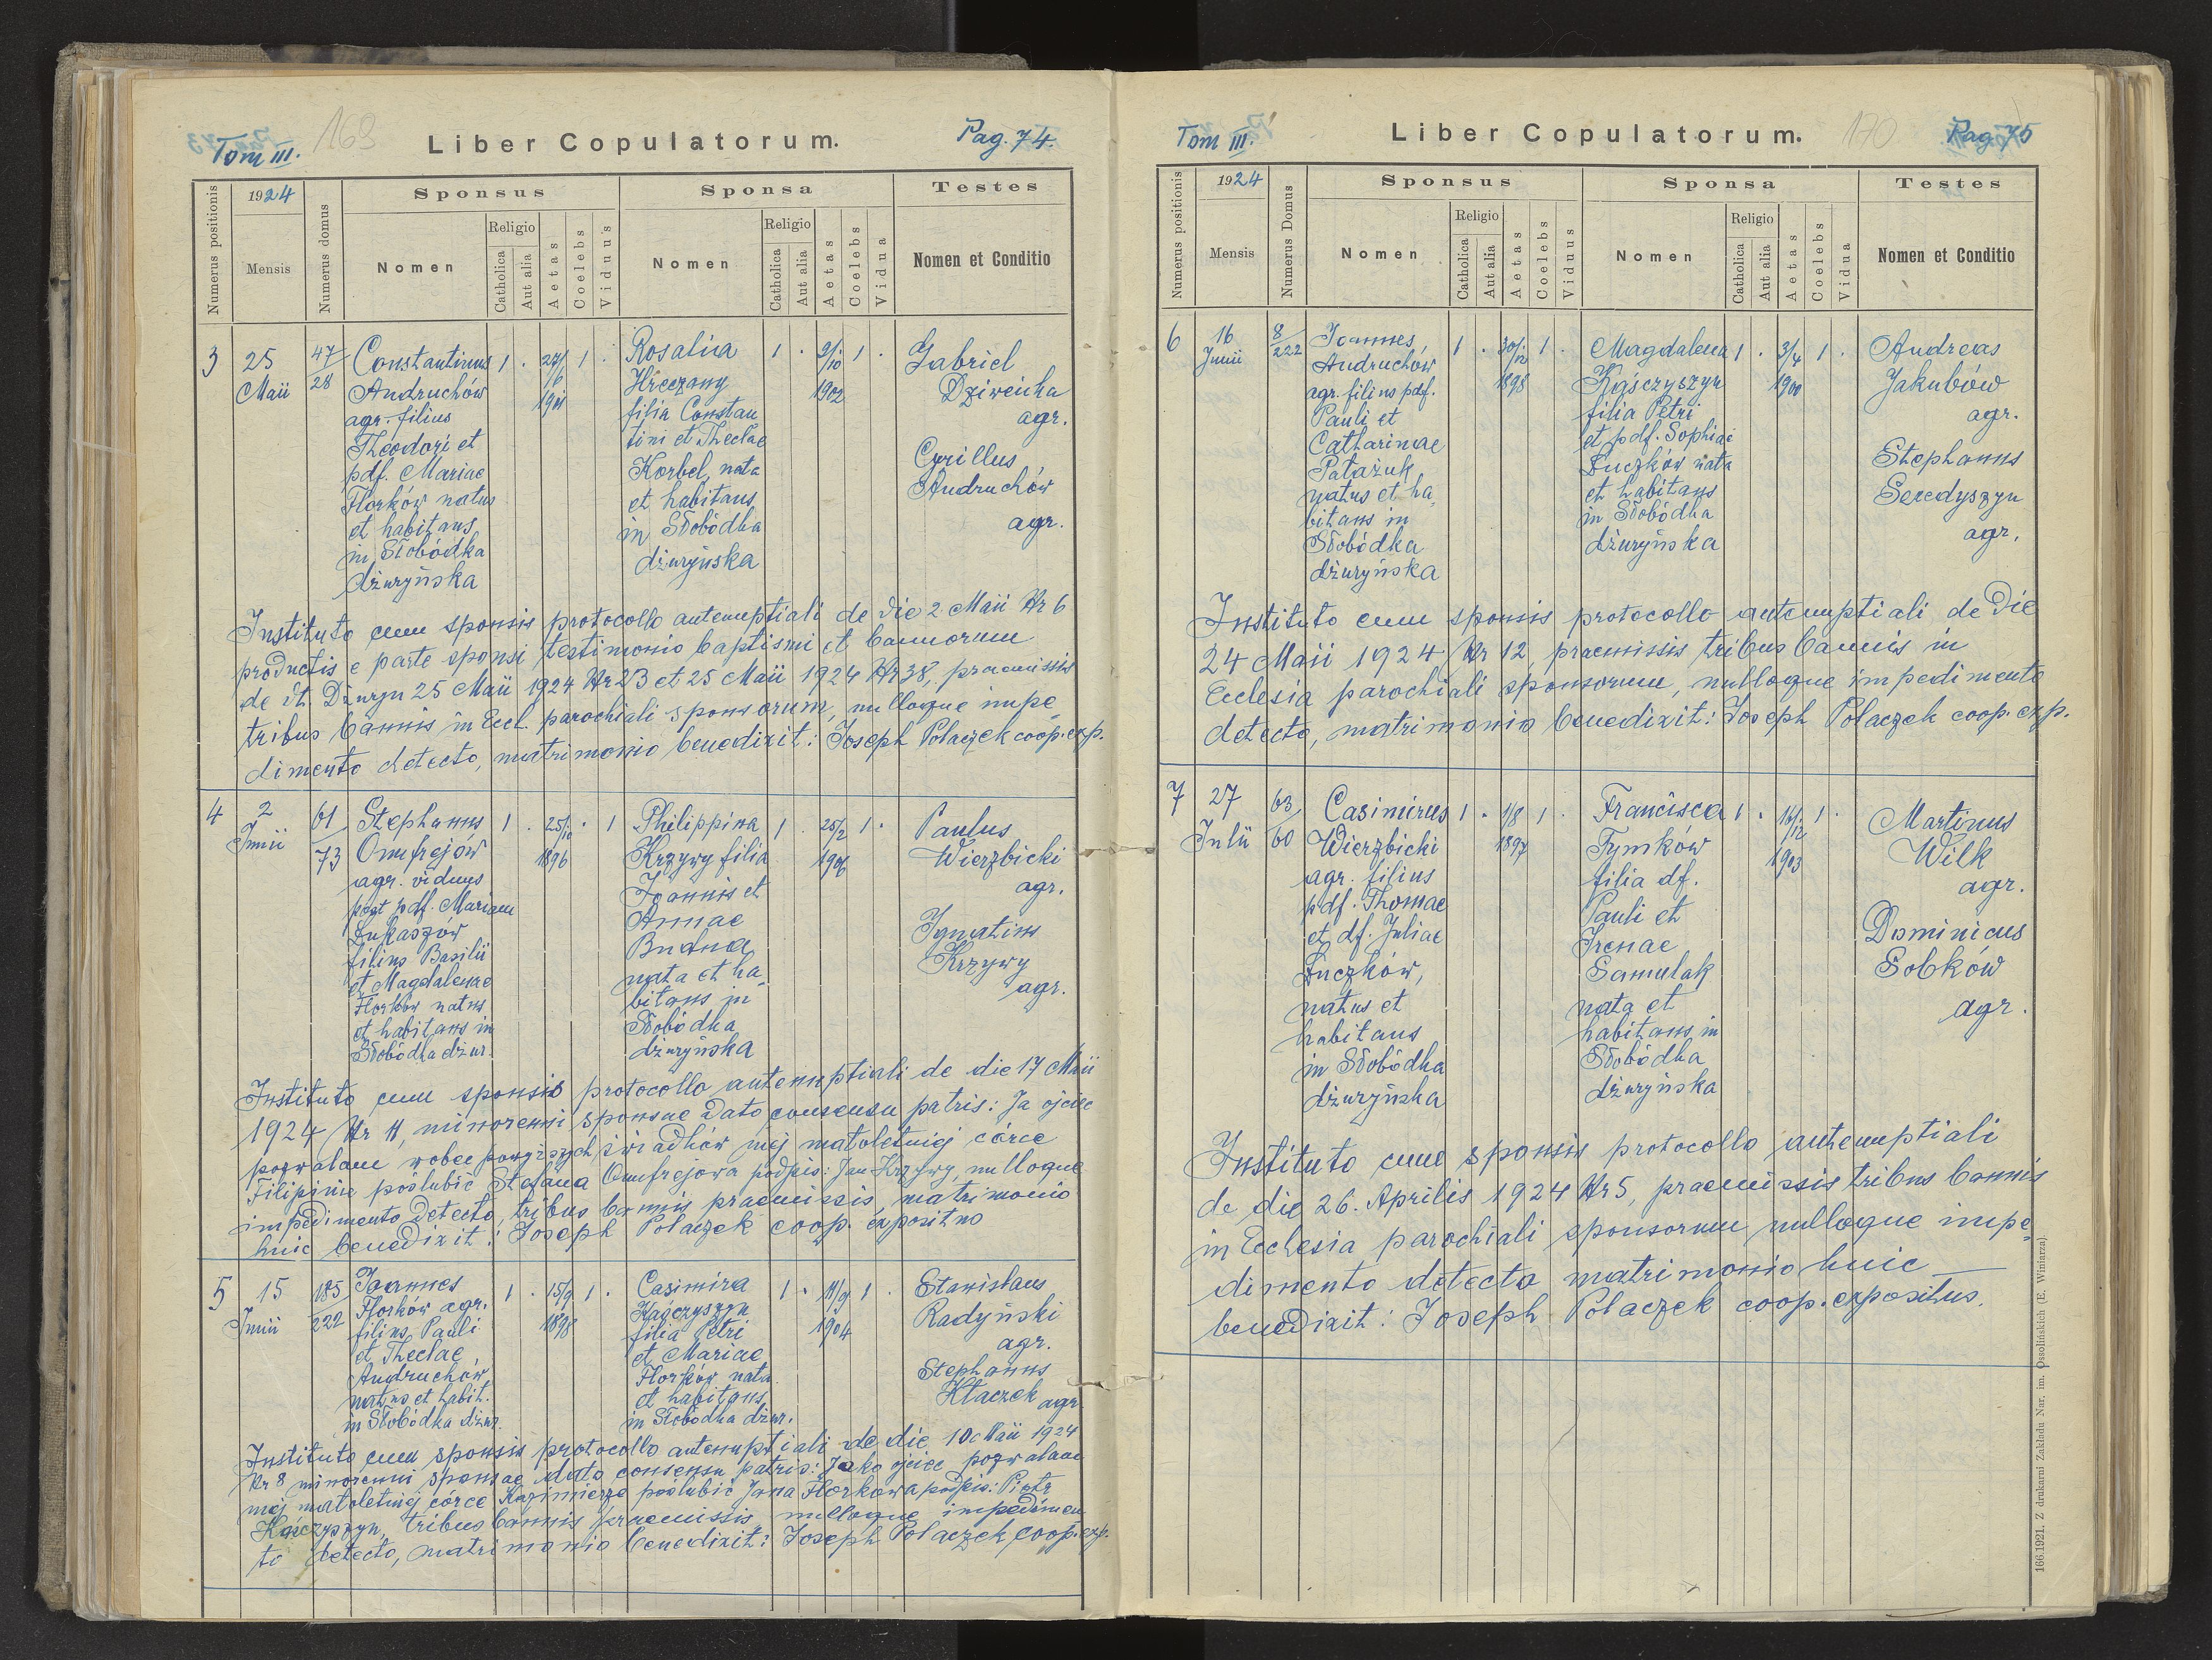 Tom III.
169
Liber Copulatorum.
Pag. 74.
Numerus positionis
1924
Mensis
Numerus domus
Sponsus
Nomen
Religio
Catholica
Aut alia
Aetas
Coelebs
Viduus
Sponsa
Nomen
Religio
Catholica
Aut alia
Aetas
Coelebs
Vidua
Testes
Nomen et Conditio
3
25
Maii
47/
28
Constantinus
Andruchów
agr. filius
Theodori et
pdf. Mariae
Florków natus
et habitans
in Słobódka
dżuryńska
1 . 27/
6
1901
1 .
Rosalia
Hreczany
filia Constan
tini et Theclae
Korbel, nata
et habitans
in Słobódka
dżuryńska
1 . 2/
10
1902
1 .
Gabriel
Dziwenka
agr.
Cyrillus
Andruchów
agr.
Instituto cum sponsis protocollo antenuptiali de die 2 Maii Nr 6
productis e parte sponsi testimonio baptismi et bannorum
de dt. Dżuryn 25 Maii 1924 Nr 23 et 25 Maii 1924 Nr 38, praemissis
tribus bannis in Eccl. parochiali sponsorum, nulloque impe
dimento detecto, matrimonio benedixit: Joseph Polaczek coop. exp.
4
2
Junii
61/
73
Stephanus
Onufrejów
agr. viduus
post pdf. Mariam
Łukaszów
filius Basilii
et Magdalenae
Florków natus
et habitans in
Słobódka dżur.
1 . 25/10
1896
. 1
Philippina
Krzywy filia
Joannis et
Annae
Budna
nata et ha
bitans in
Słobódka
dżuryńska
1 . 25/2
1906
1 .
Paulus
Wierzbicki
agr.
Ignatius
Krzywy
agr.
Instituto cum sponsis protocollo antenuptiali de die 17 Maii
1924 Nr 11, minorenni sponsae dato consensu patris: Ja ojciec
pozwalam wobec powyższych świadków mej małoletniej córce
Filipinie poślubić Stefana Onufrejowa podpis: Jan Krzywy, nulloque
impedimento detecto, tribus bannis praemissis, matrimonio
huic benedixit: Joseph Polaczek coop. expositus
5
15
Junii
185/
222
Joannes
Florków agr.
filius Pauli
et Theclae
Andruchów
natus et habit.
in Słobódka dżur.
1 . 15/9
1898
1 .
Casimira
Kaśczyszyn
filia Petri
et Mariae
Florków nata
et habitans
in Słobódka dżur.
1 . 11/9
1904
1 .
Stanislaus
Radyński
agr.
Stephanus
Kłaczek agr.
Instituto cum sponsis protocollo antenuptiali de die 10 Maii 1924
Nr 8 minorenni sponsae dato consensu patris: Jako ojciec pozwalam
mej małoletniej córce Kazimierze poślubić Jana Florkowa podpis: Piotr
Kaśczyszyn, tribus bannis praemissis, nulloque impedimen
to detecto, matrimonio benedixit: Joseph Polaczek coop. exp.
Tom III.
Liber Copulatorum.
170
Pag. 75
Numerus positionis
1924
Mensis
Numerus Domus
Sponsus
Nomen
Religio
Catholica
Aut alia
Aetas
Coelebs
Viduus
Sponsa
Nomen
Religio
Catholica
Aut alia
Aetas
Coelebs
Vidua
Testes
Nomen et Conditio
6
16
Junii
8/
222
Joannes,
Andruchów
agr. filius pdf.
Pauli et
Catharinae
Patażuk
natus et ha
bitans in
Słobódka
dżuryńska
1 . 30/
12
1898
1 .
Magdalena
Kaśczyszyn
filia Petri
et pdf. Sophiae
Łuczków nata
et habitans
in Słobódka
dżuryńska
1 . 3/4
1900
1 .
Andreas
Jakubów
agr.
Stephanus
Seredyszyn
agr.
Instituto cum sponsis protocollo antenuptiali de die
24 Maii 1924 Nr 12, praemissis tribus bannis in
Ecclesia parochiali sponsorum, nulloque impedimento
detecto, matrimonio benedixit: Joseph Polaczek coop. exp.
7
27
Julii
63/
60
Casimirus
Wierzbicki
agr. filius
pdf. Thomae
et df. Juliae
Łuczków,
natus et
habitans
in Słobódka
dżuryńska
1 . 1/8
1897
1 .
Francisca
Tymków
filia df.
Pauli et
Irenae
Samulak
nata et
habitans in
Słobódka
dżuryńska
1 . 16/
12
1903
1 .
Martinus
Wilk
agr.
Dominicus
Sobków
agr.
Instituto cum sponsis protocollo antenuptiali
de die 26. Aprilis 1924 Nr 5, praemissis tribus bannis
in Ecclesia parochiali sponsorum nulloque impe
dimento detecto matrimonio huic
benedixit: Joseph Polaczek coop. expositus.
166.1921. Z drukarni Zakładu Nar. im. Ossolińskich (E. Winiarza).